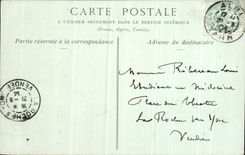 CARTE POSTALE
A UTILISER SEULEMENT DANS LE SERVICE INTÉRIEUR
(France, Algérie, Tunisie)
Partie réservée à la correspondance
Adresse du destinataire
Monsieur
Étudiant en Médecine
Place du
La Roche sur Yon
Vendée
VENDEE